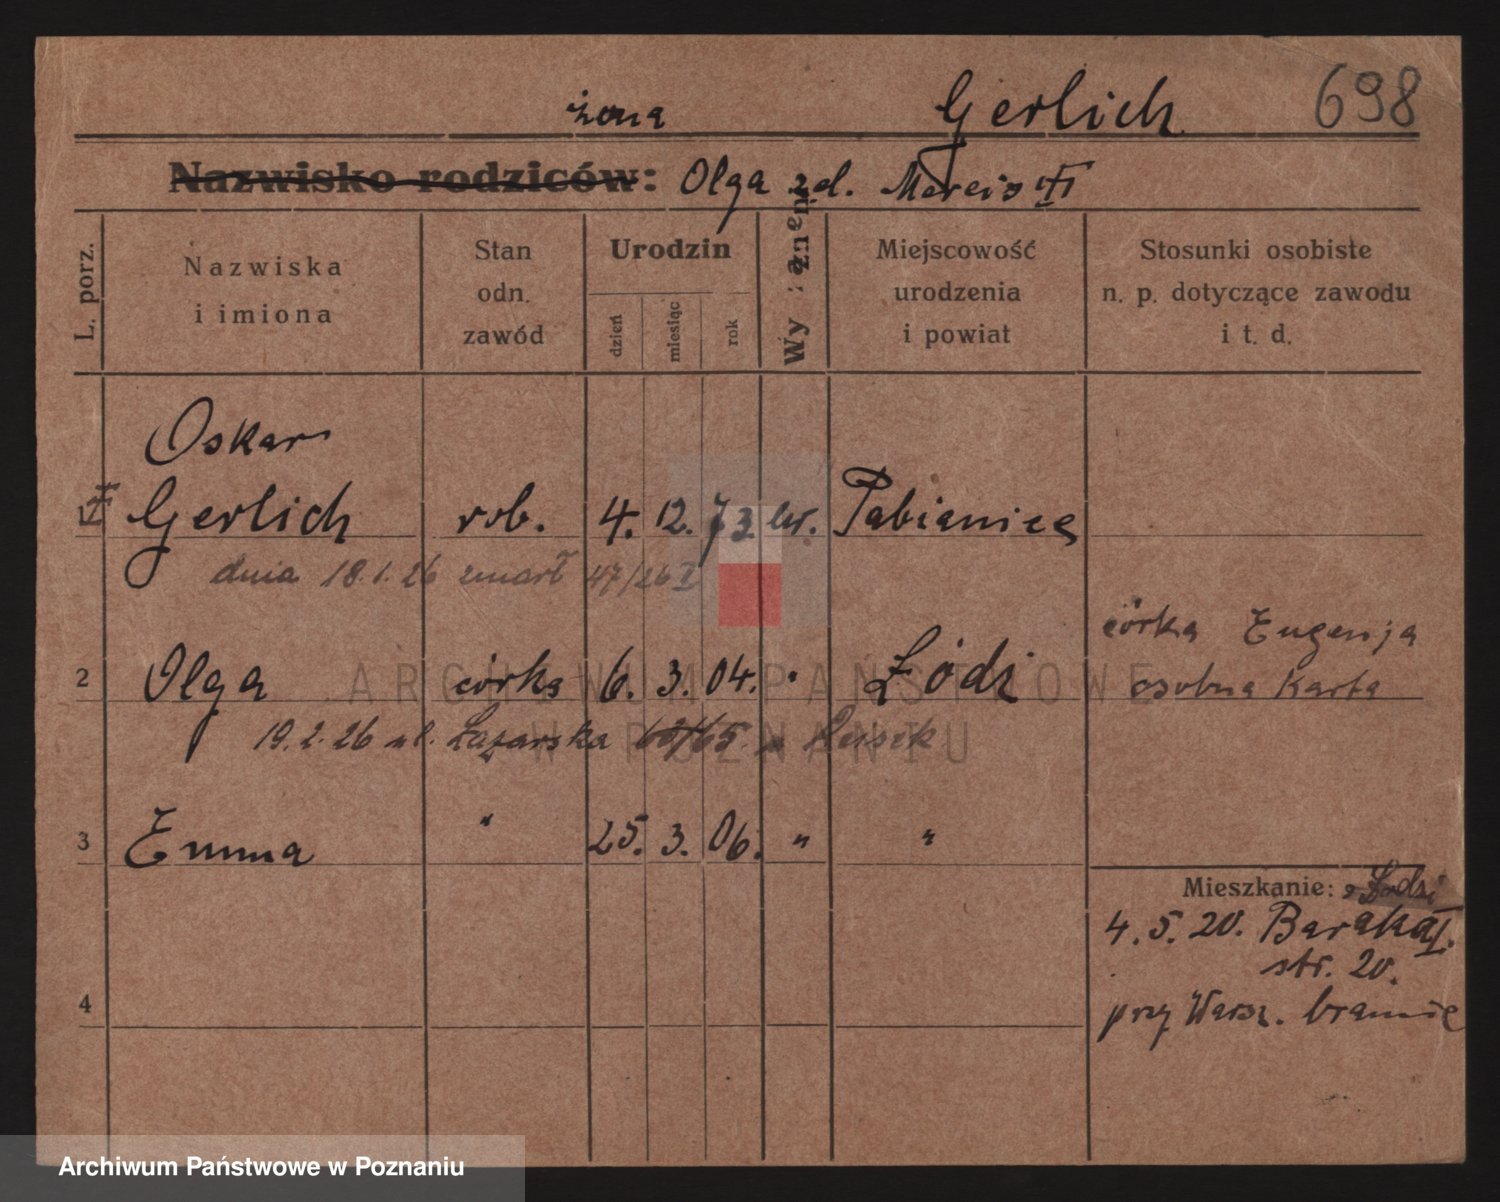 Gerlich 698
żona
Nazwisko rodziców: Olga zd.
L. porz.
Nazwiska
i imiona
Stan
odn.
zawód
Urodzin
dzień
miesiąc
rok
Miejscowość
urodzenia
i powiat
Stosunki osobiste
n. p. dotyczące zawodu
i t. d.
Oskar
1 Gerlich rob. 4. 12. 73 ew. Pabianice
dnia 18.1.26 zmarł 47/26 I
córka Eugenja
2 Olga córka 6. 3. 04. " Łódź osobna karta
19.2.26 ul. Łazarska
3 Emma " 25. 3. 06. " "
Mieszkanie: z Łodzi
4.5.20. Baraka I.
str. 20.
4
przy Warsz. bramie
ARCHIWUM PAŃSTWOWE
W POZNANIU
Archiwum Państwowe w Poznaniu